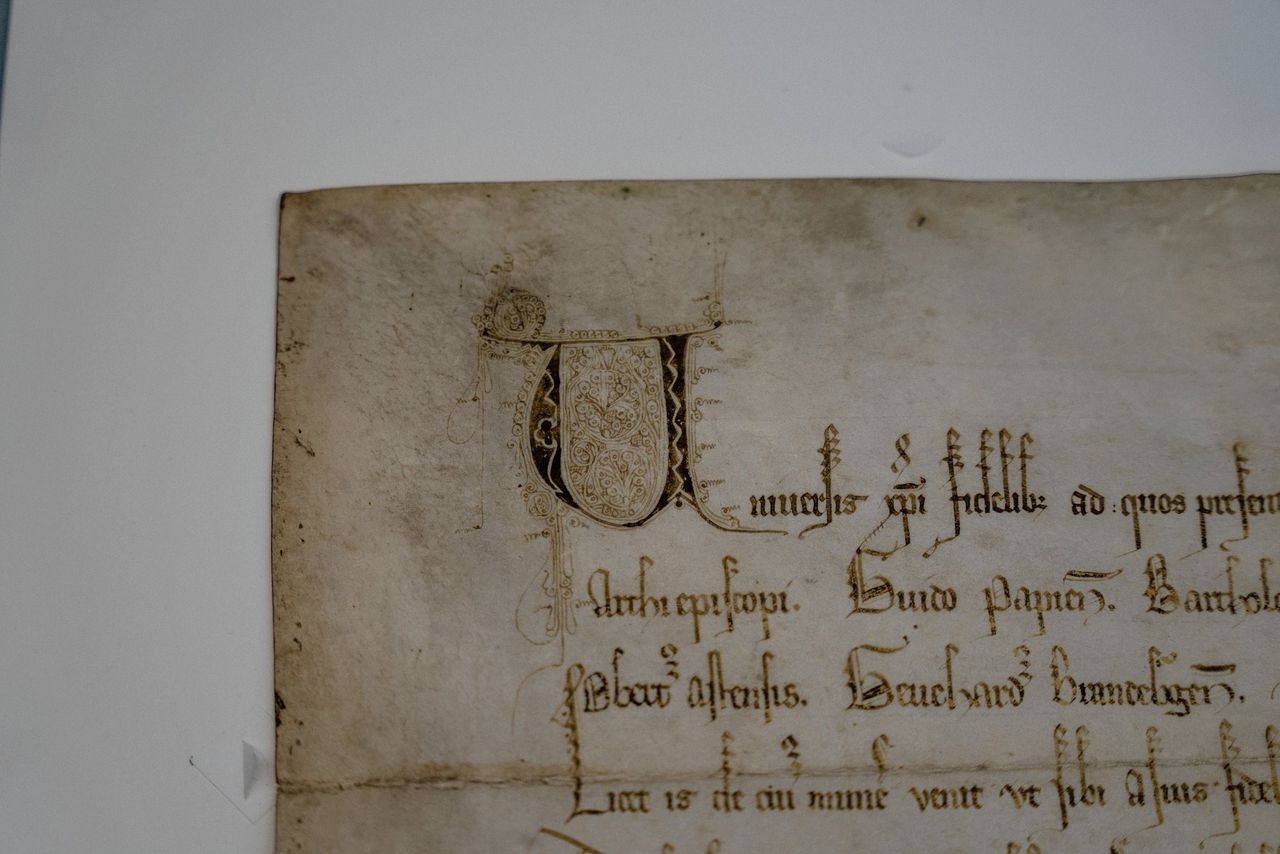 Uniuersis xpi fidelib; ad quos presen
Archiepiscopi. Guido Papien. Barthol
Obert' astensis. Geuehard'
Licet is de cui' mune' venit vt sibi a suis fidel